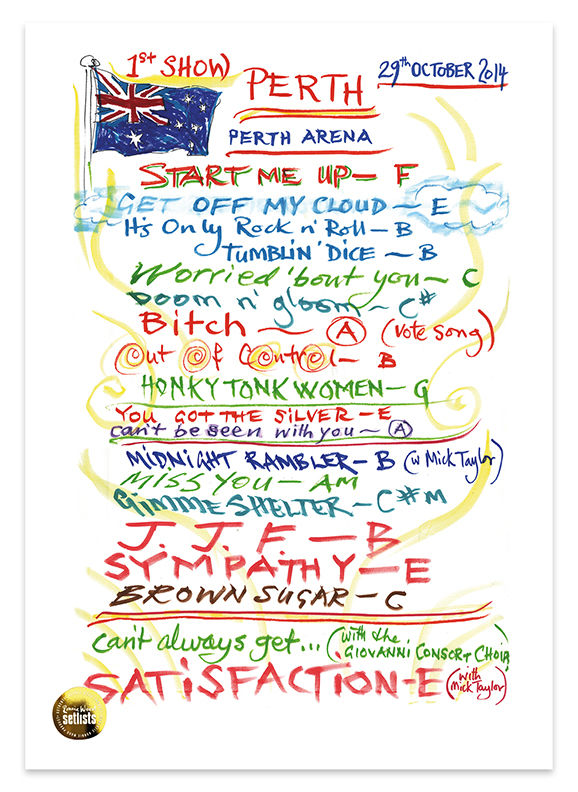 1st SHOW)
PERTH
29th OCTOBER 2014
PERTH ARENA
START ME UP — F
GET OFF MY CLOUD — E
It's Only Rock n' Roll — B
TUMBLIN' DICE — B
Worried 'bout you — C
Doom n' gloom — C#
Bitch — A (vote song)
Out Of Control — B
HONKY TONK WOMEN — G
YOU GOT THE SILVER — E
can't be seen with you — A
MIDNIGHT RAMBLER — B (w Mick Taylor)
MISS YOU — AM
GIMME SHELTER — C#M
J. J. F. — B
SYMPATHY — E
BROWN SUGAR — C
can't always get... (with the GIOVANNI CONSORT CHOIR)
SATISFACTION — E (with Mick Taylor)
Ronnie Wood
setlists